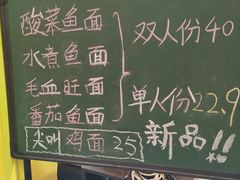 酸菜鱼面
水煮鱼面
毛血旺面
番茄鱼面
尖叫鸡面 25
双人份40
单人份22.9
新品!!